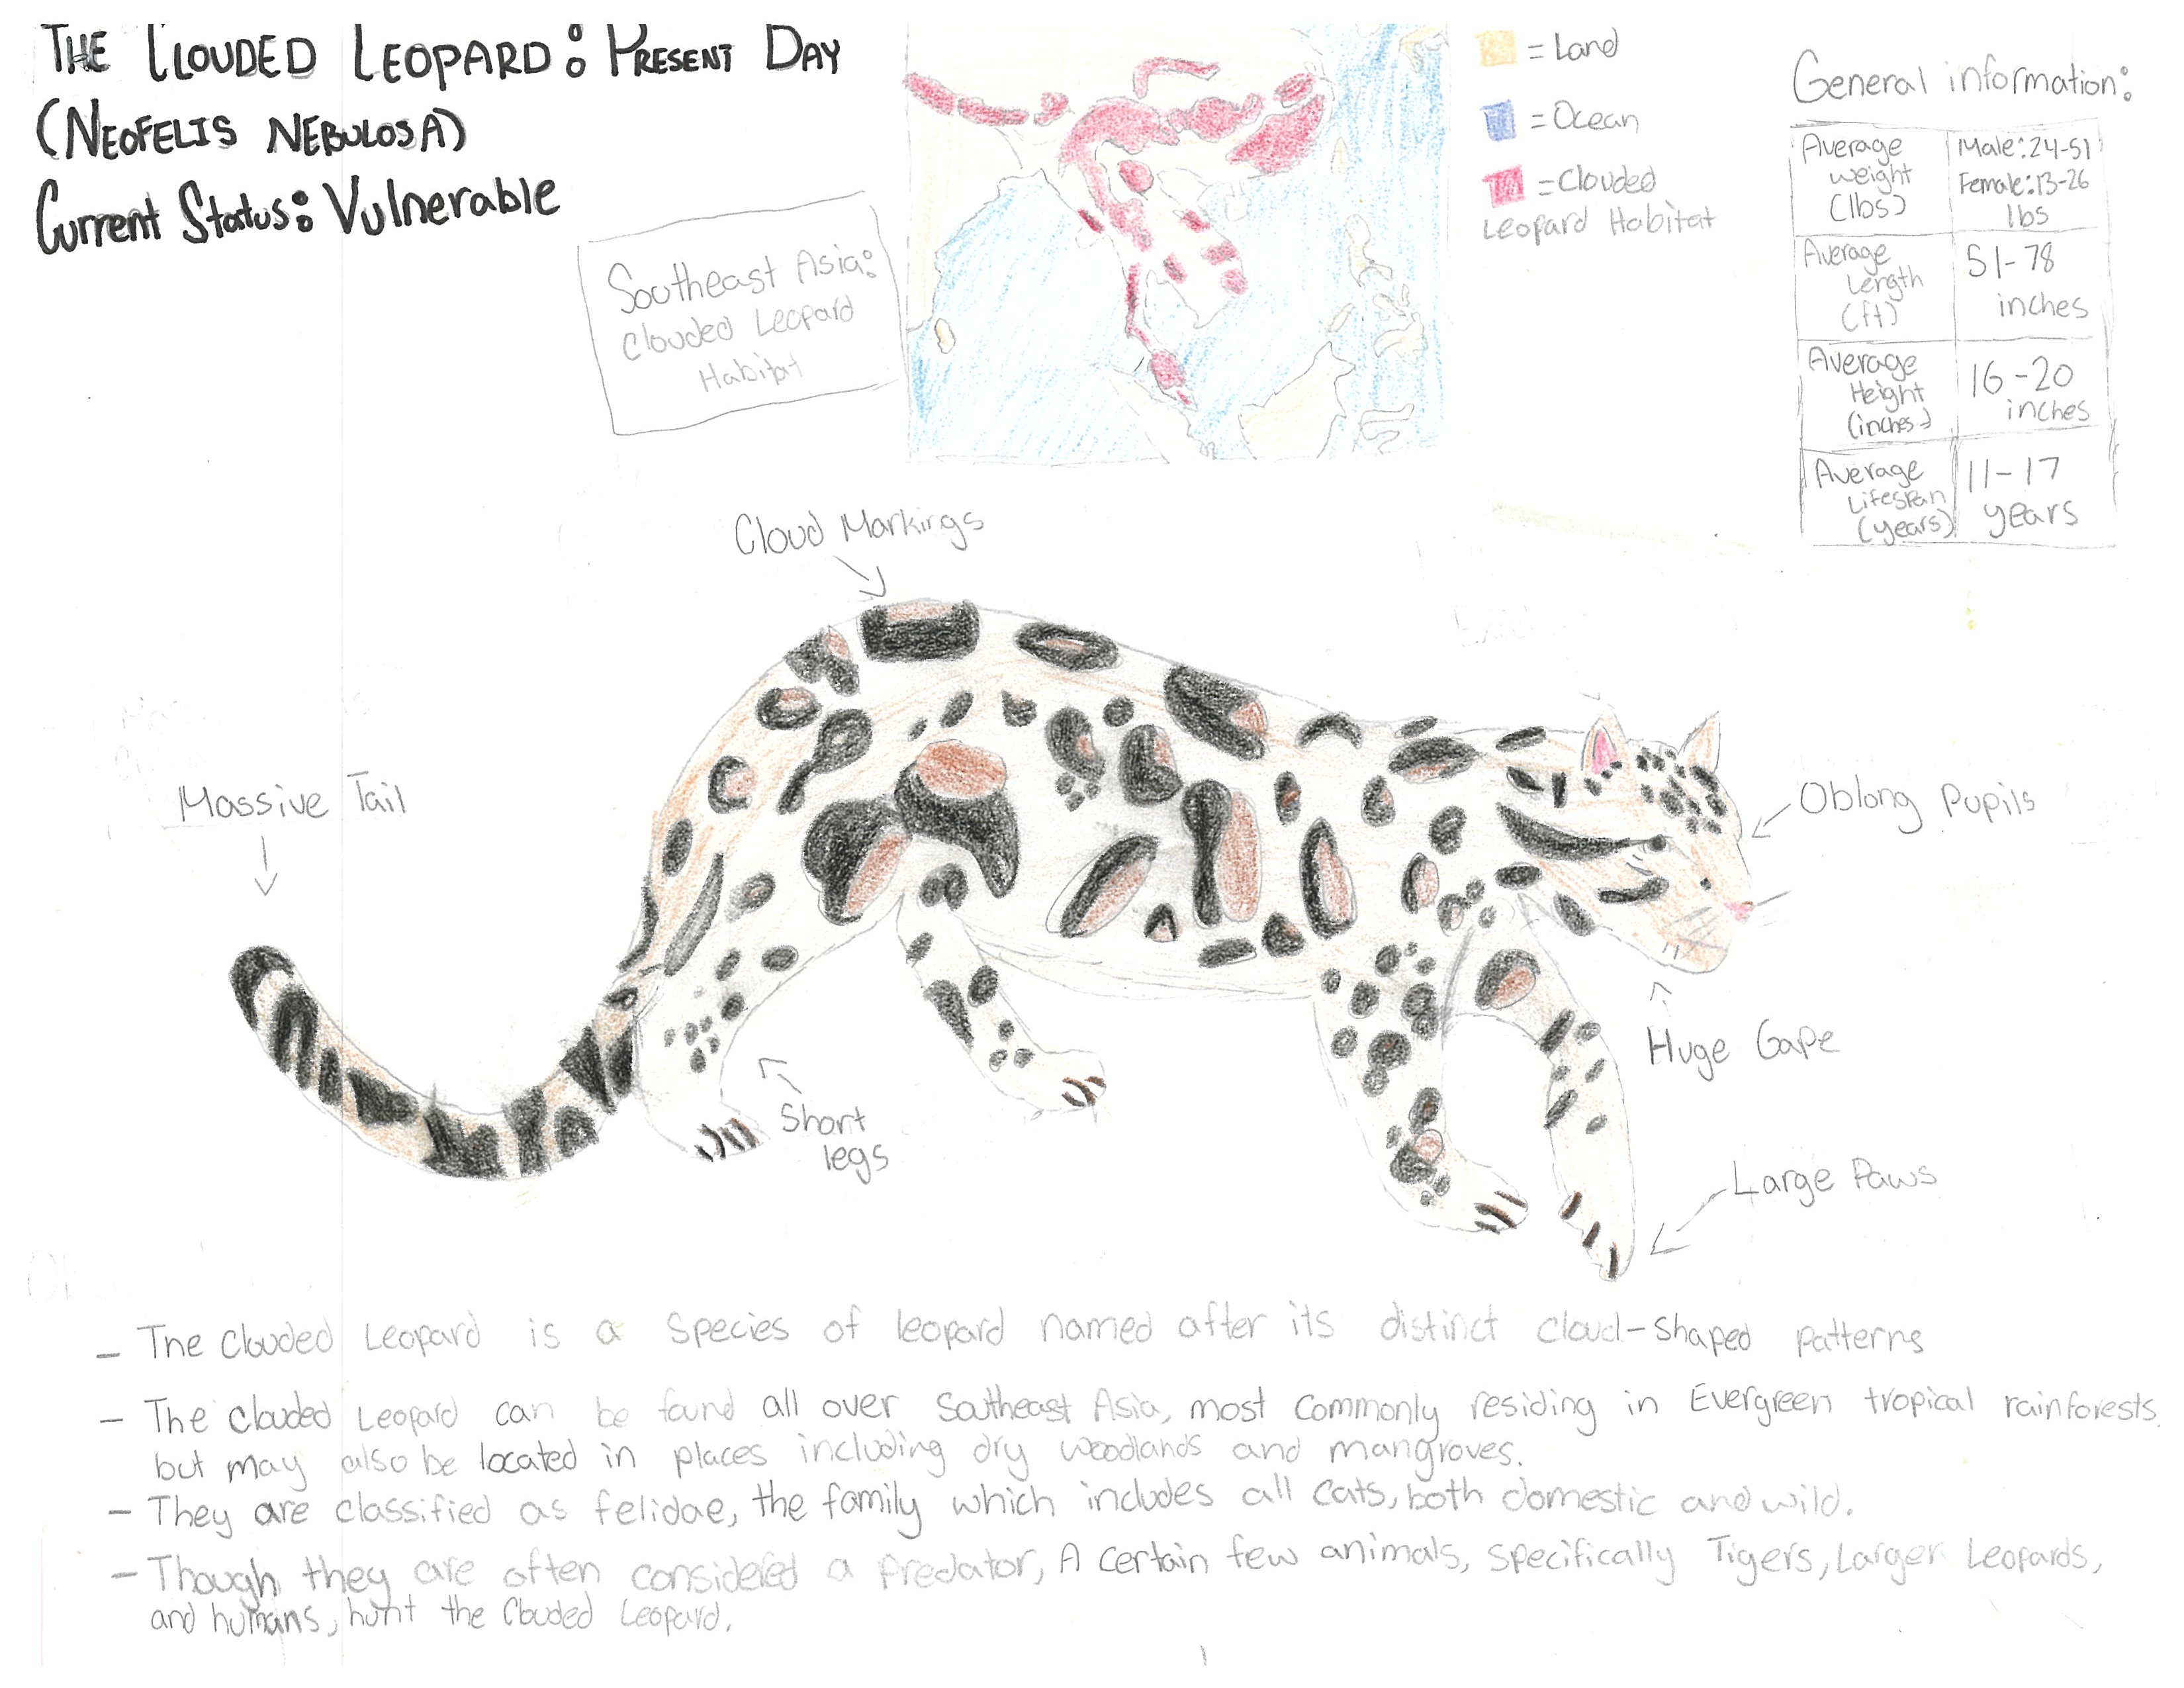 THE CLOUDED LEOPARD: PRESENT DAY
(NEOFELIS NEBULOSA)
Current Status: Vulnerable
Southeast Asia:
Clouded Leopard
Habitat
= Land
= Ocean
= Clouded
Leopard Habitat
General information:
Average
weight
(lbs)
Male: 24-51
Female: 13-26
lbs
Average
Length
(ft)
51-78
inches
Average
Height
(inches)
16-20
inches
Average
Lifespan
(years)
11-17
years
Cloud Markings
Massive Tail
Oblong Pupils
Huge Gape
Short
legs
Large Paws
- The Clouded Leopard is a species of leopard named after its distinct cloud-shaped patterns
- The clouded Leopard can be found all over Southeast Asia, most commonly residing in Evergreen tropical rainforests,
but may also be located in places including dry woodlands and mangroves.
- They are classified as felidae, the family which includes all cats, both domestic and wild.
- Though they are often considered a predator, A certain few animals, specifically Tigers, Larger Leopards,
and humans, hunt the Clouded Leopard.